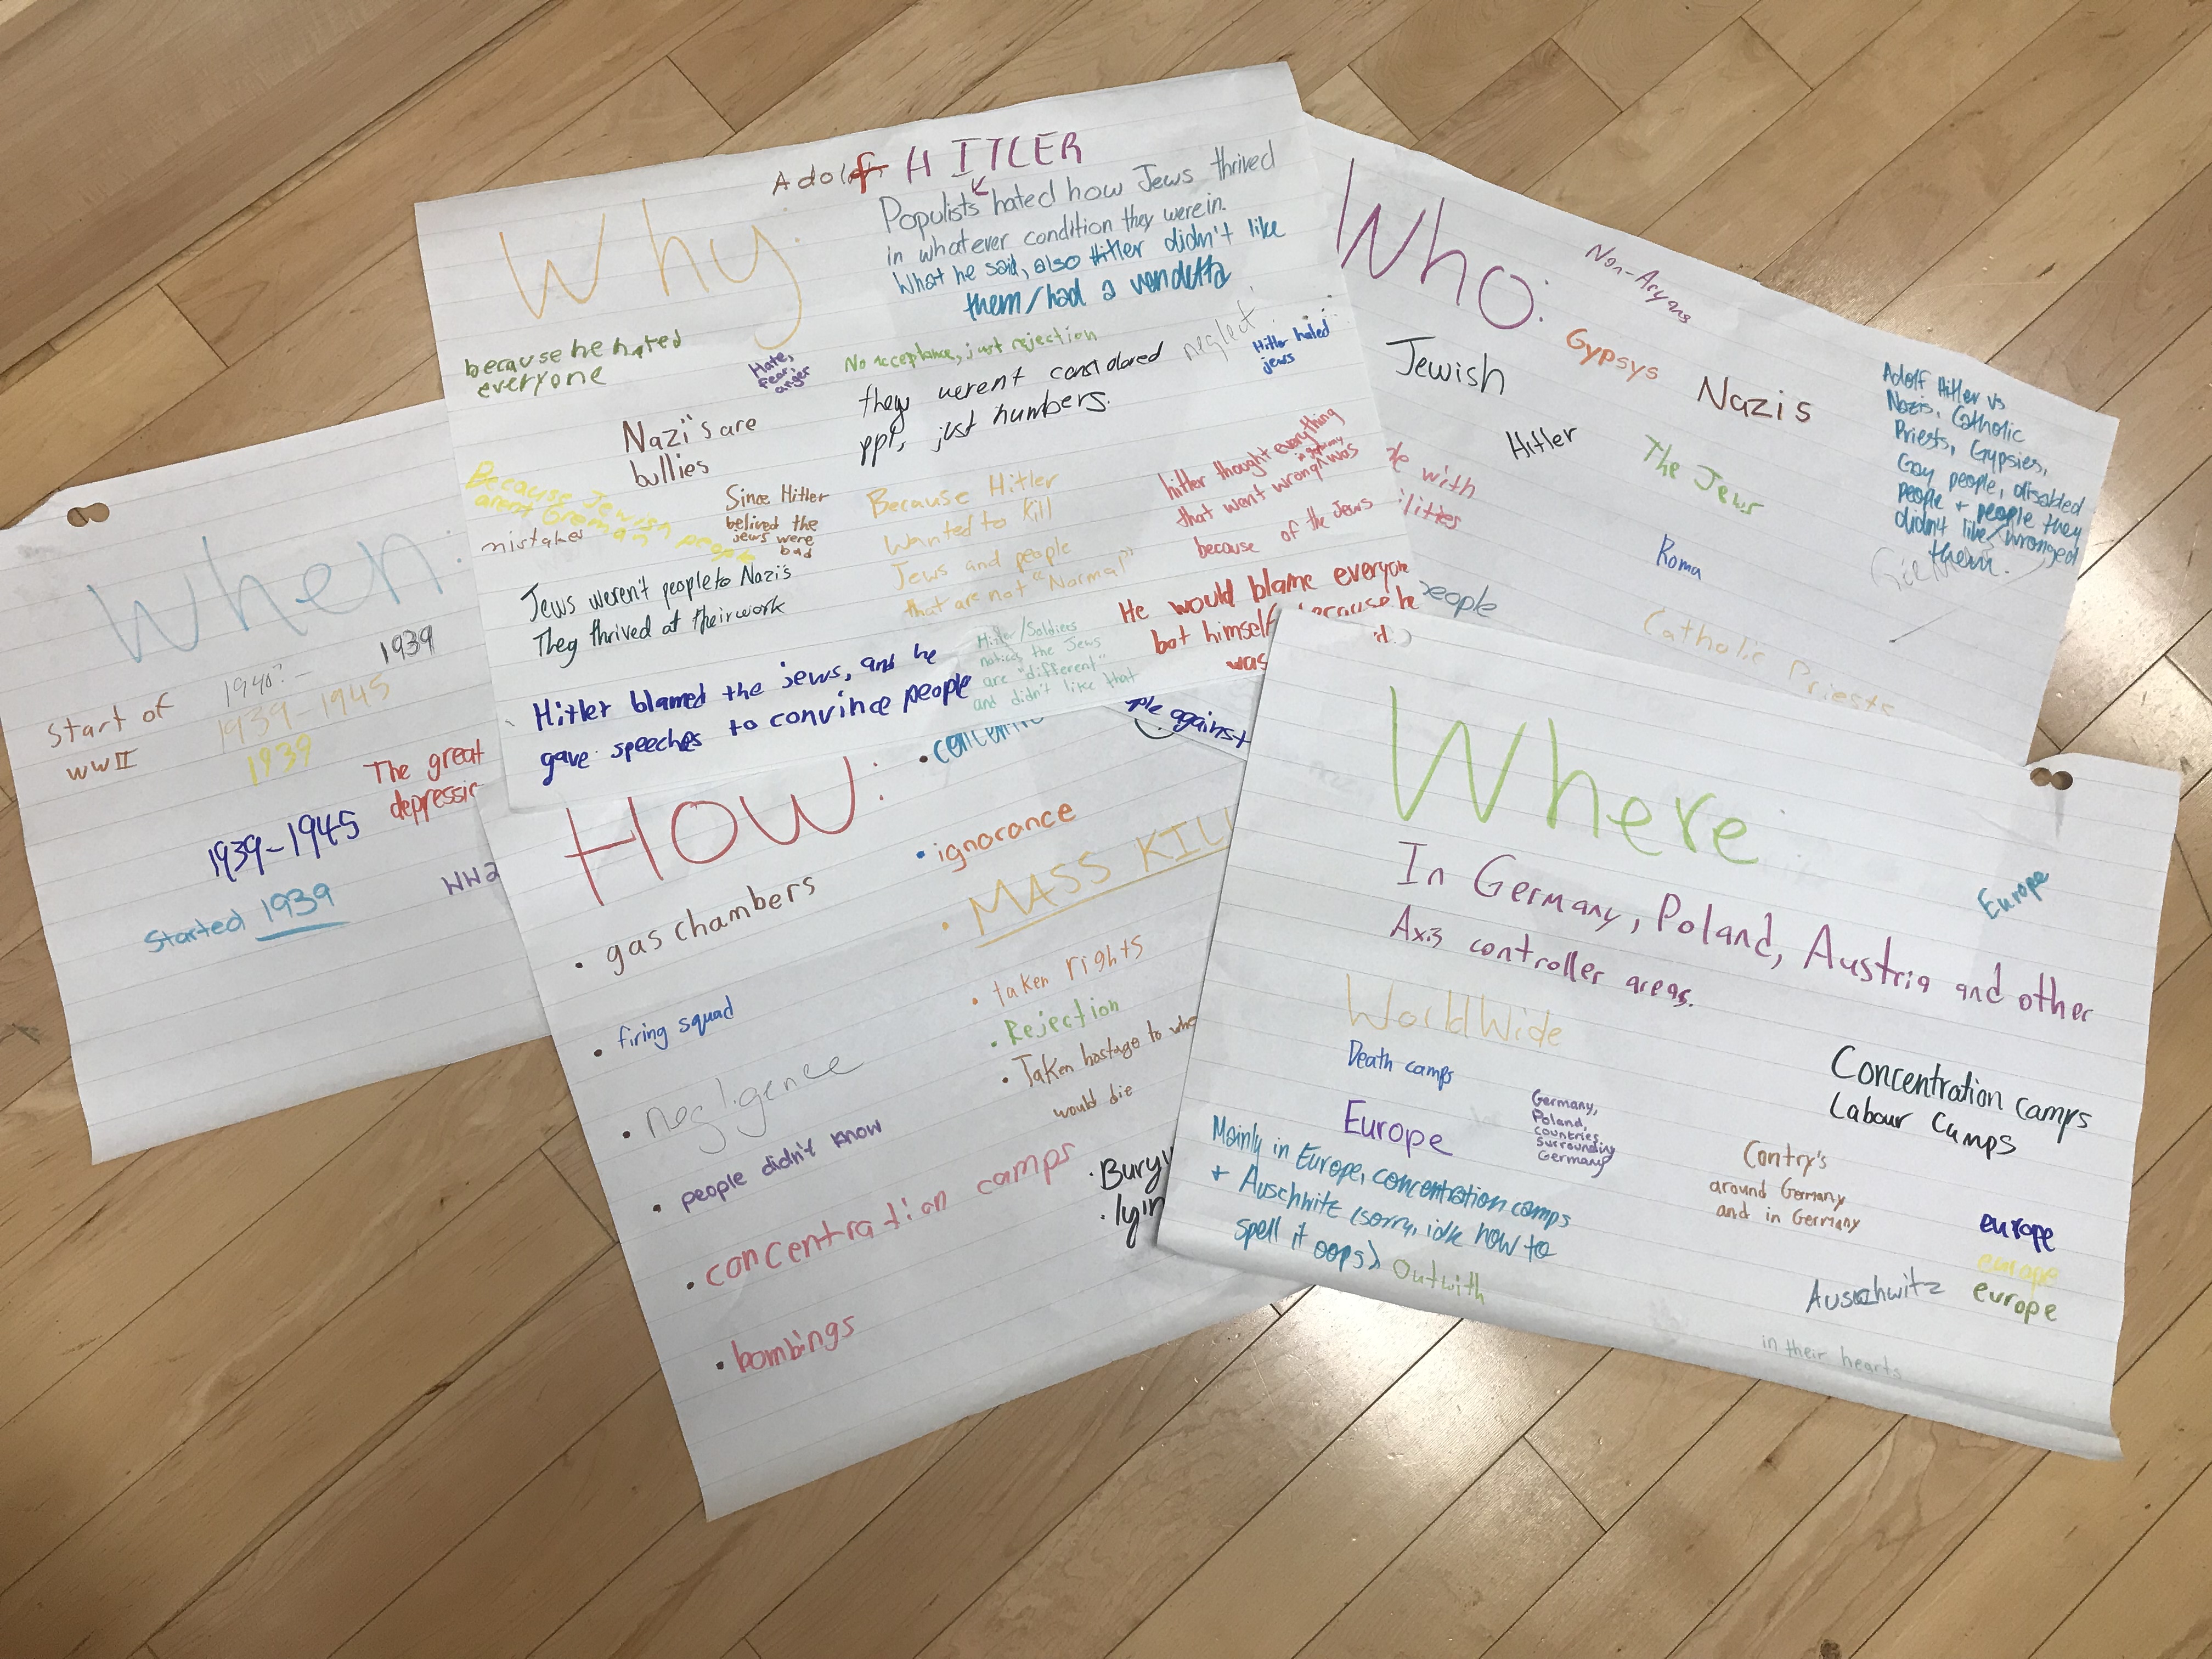 When:
1939
1940?-
Start of
WWII
1939-1945
1939
The great
depressi
1939-1945
WW2
Started 1939
Adolf HITLER
Why:
Populists hated how Jews thrived
in whatever condition they were in.
What he said, also Hitler didn't like
them/had a vendetta
because he hated
everyone
Hate,
fear,
anger
No acceptance, just rejection
neglect
Hitler hated
jews
they werent considared
ppl, just numbers.
Nazi's are
bullies
Because Jewish
arent German
people
mistakes
Since Hitler
belived the
jews were
bad
Because Hitler
wanted to kill
Jews and people
that are not "Normal"
hitler thought everything
that went wrong was
because of the Jews
Jews weren't people to Nazis
They thrived at their work
He would blame everyone
bot himself because he
was
Hitler/Soldiers
notices the Jews
are "different"
and didn't like that
Hitler blamed the jews, and he
gave speeches to convince people
ple against
Who:
Non-Aryans
Gypsys
Jewish
Nazis
Hitler
The Jews
Adolf Hitler vs
Nazis, Catholic
Priests, Gypsies,
Gay people, disabled
people + people they
didn't like/wronged
them.
with
Roma
people
Catholic Priests
How:
• concentr
• ignorance
• gas chambers
• MASS KILL
• firing squad
• taken rights
• Rejection
• negligence
• Taken hostage to whe
would die
• people didn't know
• concentration camps
• Bury
• lyin
• bombings
Where
Europe
In Germany, Poland, Austria and other
Axis controller areas.
WorldWide
Death camps
Concentration camps
Labour Camps
Europe
Germany,
Poland,
Countries
Surrounding
Germany
Mainly in Europe, concentration camps
+ Auschwite (sorry, idk how to
spell it oops)
Outwith
Contry's
around Germany
and in Germany
europe
europe
Auschwitz
europe
in their hearts